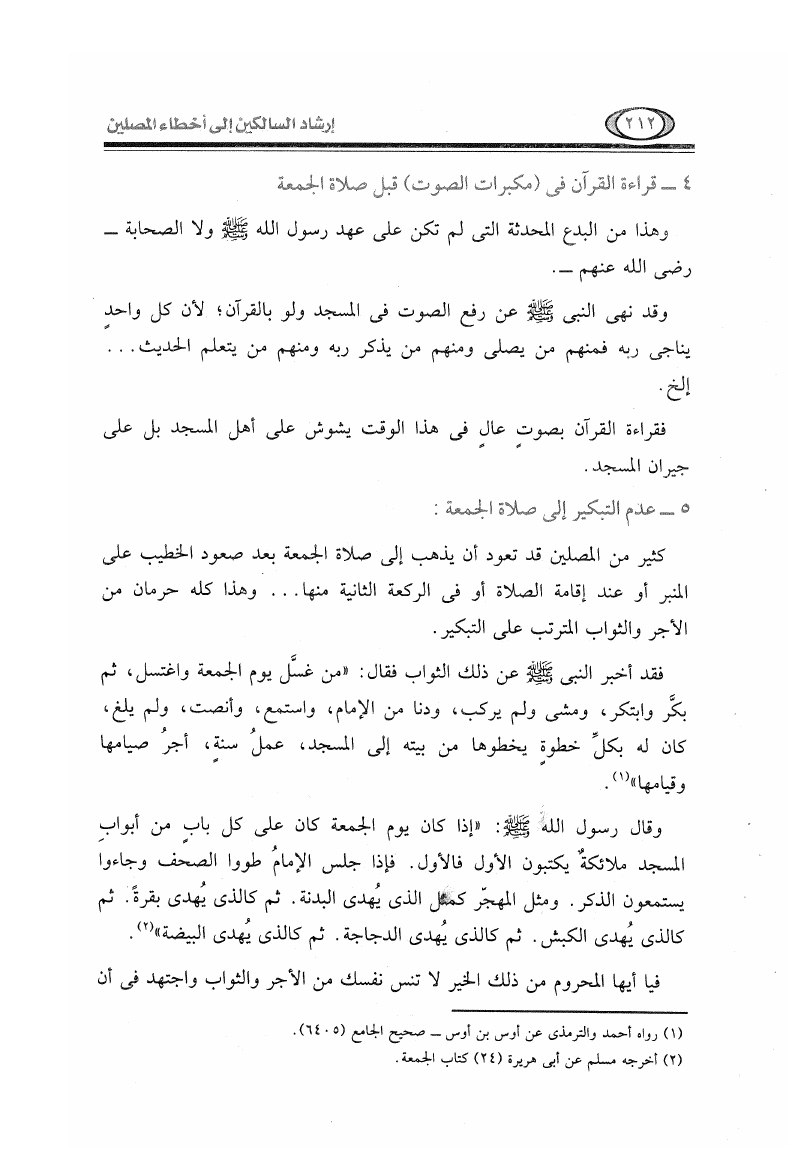 إرشاد السالكين إلى أخطاء المصلين ٢١٢
٤ ــ قراءة القرآن فى (مكبرات الصوت) قبل صلاة الجمعة
وهذا من البدع المحدثة التى لم تكن على عهد رسول الله ﷺ ولا الصحابة ــ
رضى الله عنهم ــ.
وقد نهى النبى ﷺ عن رفع الصوت فى المسجد ولو بالقرآن؛ لأن كل واحدٍ
يناجى ربه فمنهم من يصلى ومنهم من يذكر ربه ومنهم من يتعلم الحديث...
إلخ.
فقراءة القرآن بصوتٍ عالٍ فى هذا الوقت يشوش على أهل المسجد بل على
جيران المسجد.
٥ ــ عدم التبكير إلى صلاة الجمعة :
كثير من المصلين قد تعود أن يذهب إلى صلاة الجمعة بعد صعود الخطيب على
المنبر أو عند إقامة الصلاة أو فى الركعة الثانية منها... وهذا كله حرمان من
الأجر والثواب المترتب على التبكير.
فقد أخبر النبى ﷺ عن ذلك الثواب فقال: «من غسَّل يوم الجمعة واغتسل، ثم
بكَّر وابتكر، ومشى ولم يركب، ودنا من الإمام، واستمع، وأنصت، ولم يلغ،
كان له بكلِّ خطوةٍ يخطوها من بيته إلى المسجد، عملُ سنةٍ، أجرُ صيامها
وقيامها»(١).
وقال رسول الله ﷺ: «إذا كان يوم الجمعة كان على كل بابٍ من أبوابِ
المسجد ملائكةٌ يكتبون الأول فالأول. فإذا جلس الإمامُ طووا الصحف وجاءوا
يستمعون الذكر. ومثل المهجّر كمثل الذى يُهدى البدنة. ثم كالذى يُهدى بقرةً. ثم
كالذى يُهدى الكبش. ثم كالذى يُهدى الدجاجة. ثم كالذى يُهدى البيضة»(٢).
فيا أيها المحروم من ذلك الخير لا تنس نفسك من الأجر والثواب واجتهد فى أن
(١) رواه أحمد والترمذى عن أوس بن أوس ــ صحيح الجامع (٦٤٠٥).
(٢) أخرجه مسلم عن أبى هريرة (٢٤) كتاب الجمعة.